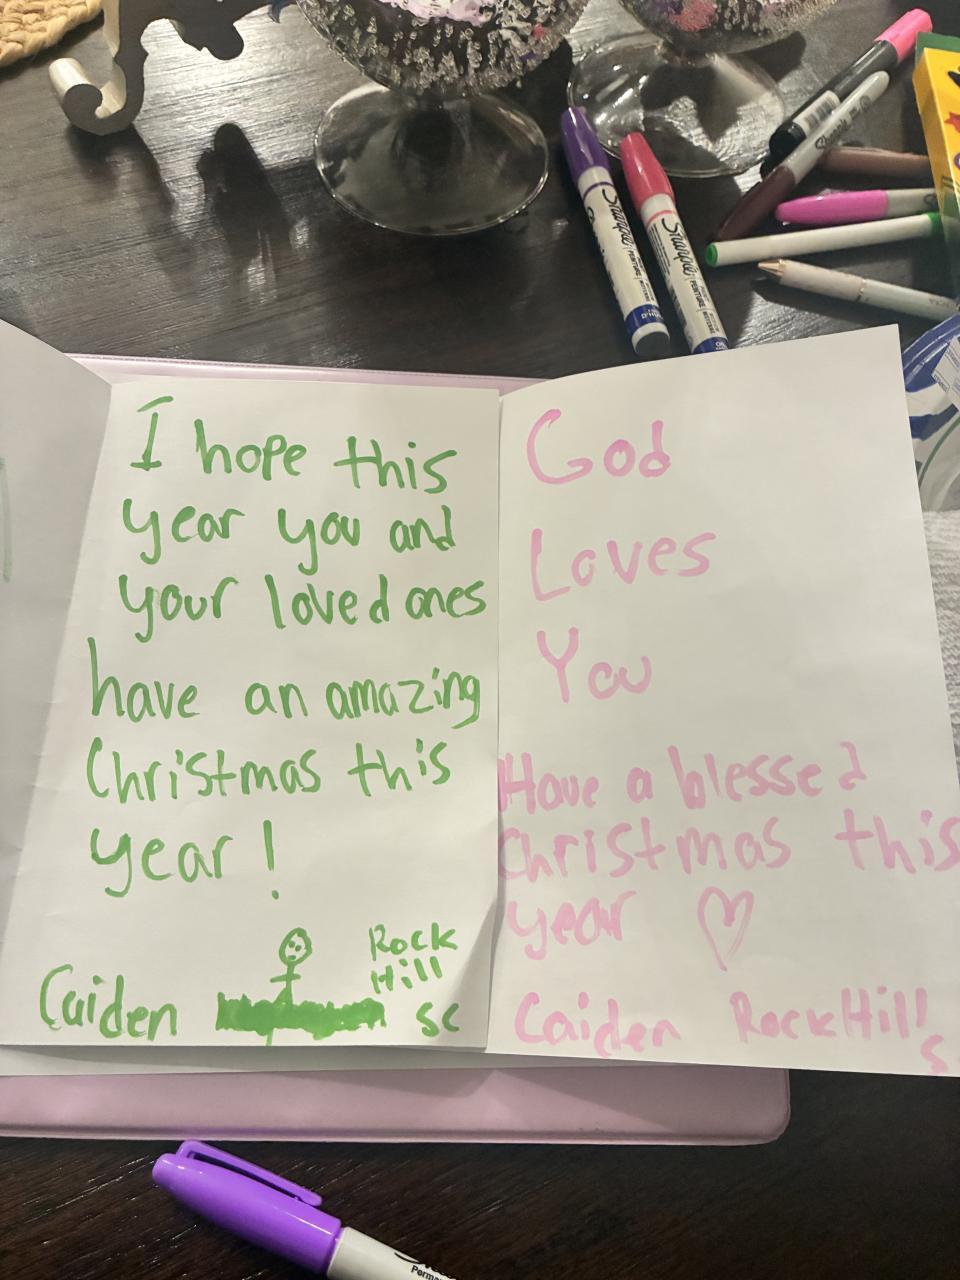 I hope this
year you and
your loved ones
have an amazing
Christmas this
year!
Caiden
Rock
Hill
SC
God
Loves
You
Have a blessed
Christmas this
year
Caiden Rock Hill
S
Sharpie
PEINTURE
Sharpie
PEINTURE